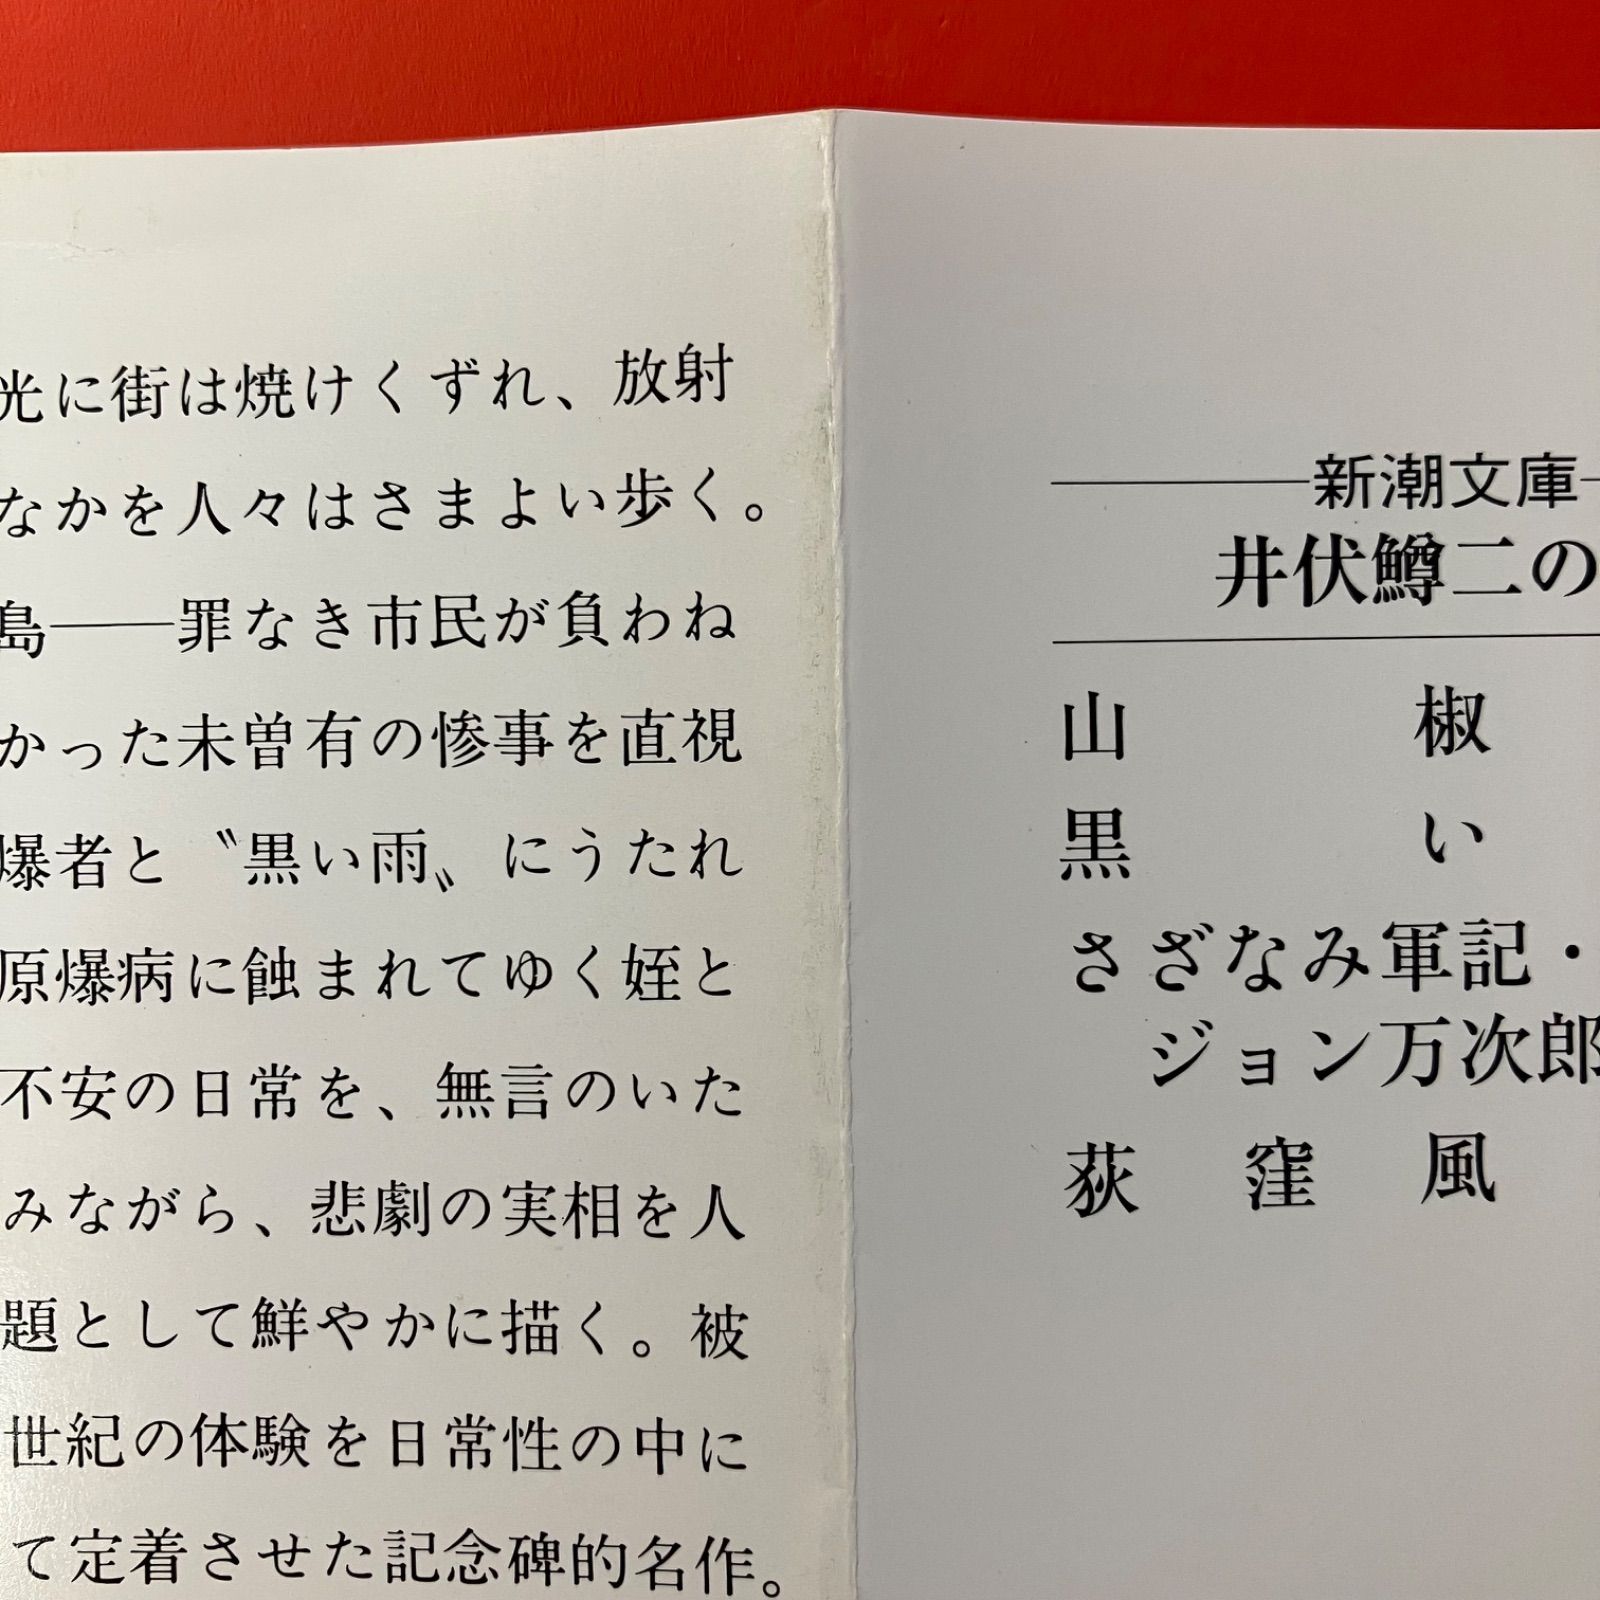 光に街は焼けくずれ、放射
なかを人々はさまよい歩く。
島――罪なき市民が負わね
かった未曽有の惨事を直視
爆者と〝黒い雨〟にうたれ
原爆病に蝕まれてゆく姪と
不安の日常を、無言のいた
みながら、悲劇の実相を人
題として鮮やかに描く。被
世紀の体験を日常性の中に
て定着させた記念碑的名作。
新潮文庫
井伏鱒二の
山椒
黒い
さざなみ軍記・
ジョン万次郎
荻窪風